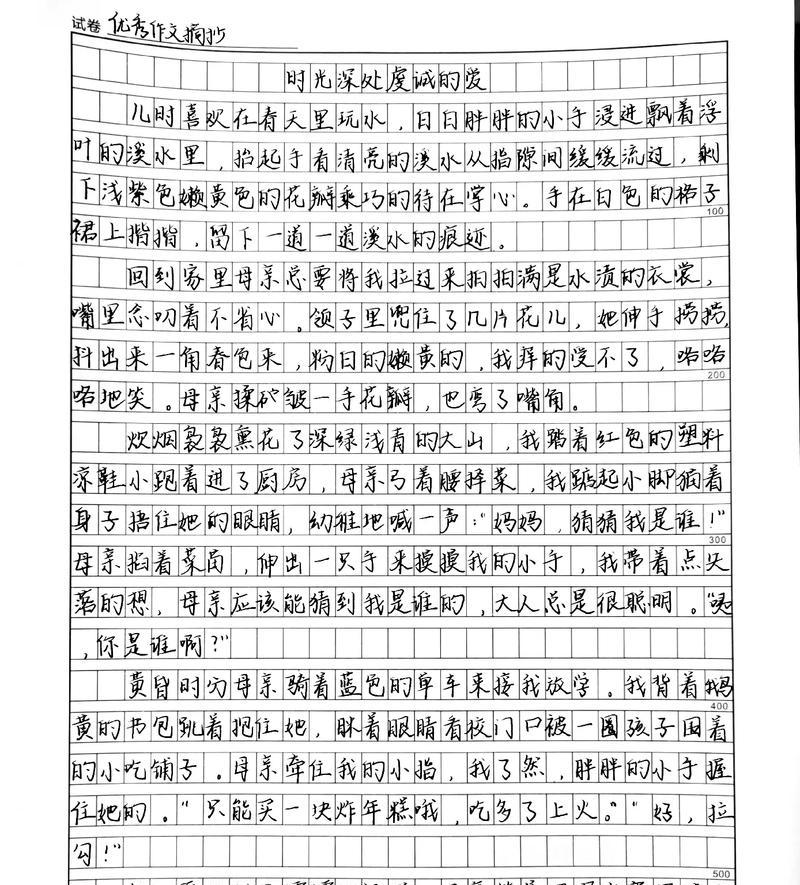 试卷 优秀作文摘抄
时光深处虔诚的爱
儿时喜欢在春天里玩水，白白胖胖的小手浸进飘着浮
叶的溪水里，抬起手看清亮的溪水从指隙间缓缓流过，剩
下浅紫色嫩黄色的花瓣乘巧的待在掌心。手在白色的格子
100
裙上揩揩，留下一道一道溪水的痕迹。
回到家里母亲总要将我拉过来拍拍满是水渍的衣裳，
嘴里念叨着不省心。领子里兜住了几片花儿，她伸手捞捞，
抖出来一角春色来，粉白的嫩黄的，我痒的受不了，咯咯
200
咯地笑。母亲揉砂皱一手花瓣，也弯了嘴角。
炊烟袅袅熏花了深绿浅青的大山，我踏着红色的塑料
凉鞋小跑着进了厨房，母亲弓着腰择菜，我踮起小脚猫着
身子捂住她的眼睛，幼稚地喊一声：“妈妈，猜猜我是谁！”
300
母亲掐着菜茴，伸出一只手来摸摸我的小手，我带着点失
落的想，母亲应该能猜到我是谁的，大人总是很聪明。“咦
，你是谁啊？”
黄昏时分母亲骑着蓝色的单车来接我放学。我背着鹅
400
黄的书包跳着抱住她，眯着眼睛看校门口被一圈孩子围着
的小吃铺子。母亲牵住我的小指，我了然，胖胖的小手握
住她的。“只能买一块炸年糕哦，吃多了上火。”“好，拉
勾！”
500